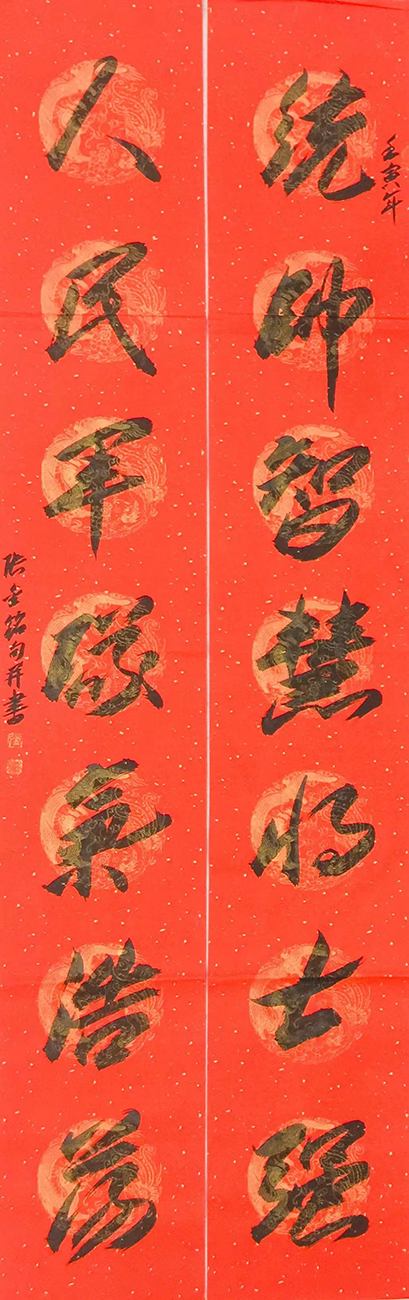 壬寅年
统帅智慧将士强
人民军队气浩荡
张金铭句并书